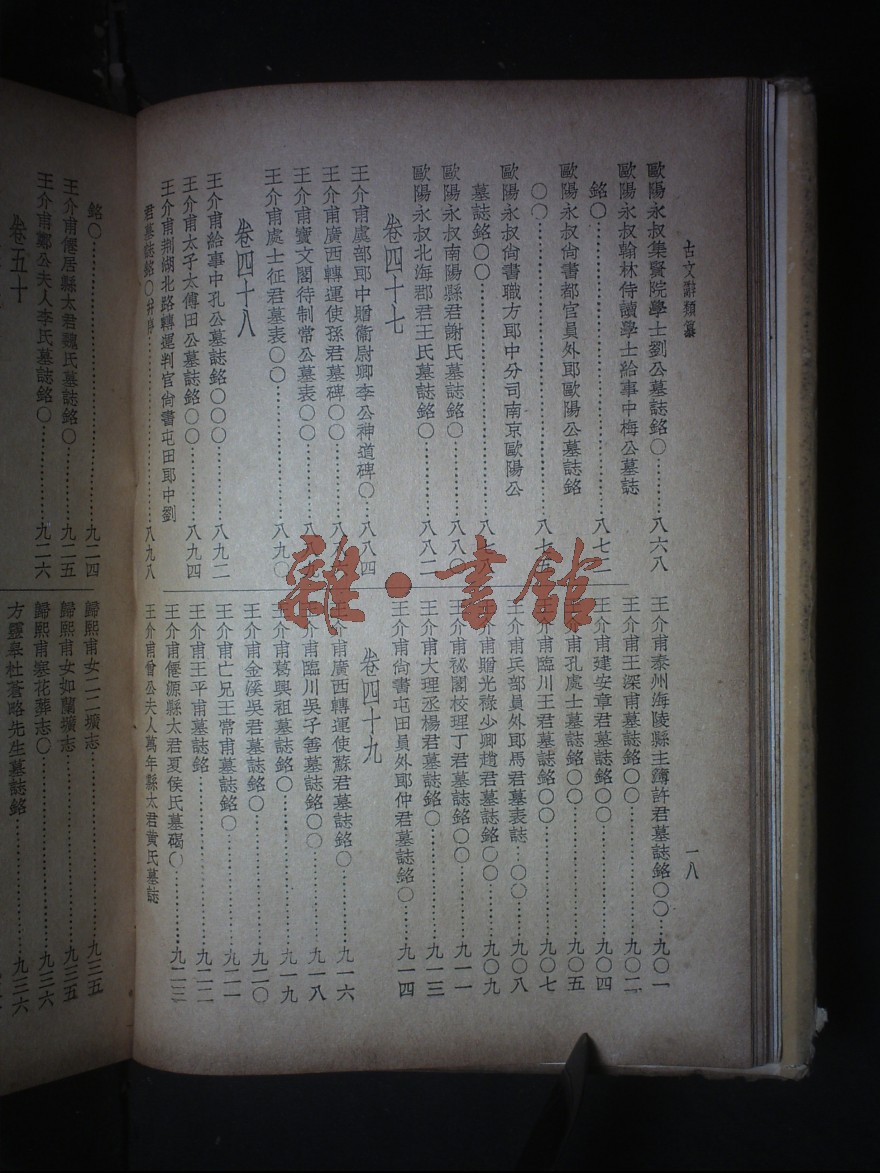 古文辭類纂
一八
歐陽永叔集賢院學士劉公墓誌銘〇…………八六八
歐陽永叔翰林侍讀學士給事中梅公墓誌
銘〇…………八七二
歐陽永叔尚書都官員外郎歐陽公墓誌銘
〇〇…………八七五
歐陽永叔尚書職方郎中分司南京歐陽公
墓誌銘〇〇…………八七八
歐陽永叔南陽縣君謝氏墓誌銘〇…………八八〇
歐陽永叔北海郡君王氏墓誌銘〇…………八八二
卷四十七
王介甫虞部郎中贈衞尉卿李公神道碑〇…………八八四
王介甫廣西轉運使孫君墓碑〇〇…………
王介甫寶文閣待制常公墓表〇〇…………八
王介甫處士征君墓表〇〇…………八九〇
卷四十八
王介甫給事中孔公墓誌銘〇〇〇…………八九二
王介甫太子太傅田公墓誌銘〇〇…………八九四
王介甫荆湖北路轉運判官尚書屯田郎中劉
君墓誌銘〇并序…………八九八
王介甫泰州海陵縣主簿許君墓誌銘〇〇…九〇一
王介甫王深甫墓誌銘〇〇…………九〇二
王介甫建安章君墓誌銘〇〇…………九〇四
王介甫孔處士墓誌銘〇〇…………九〇五
王介甫臨川王君墓誌銘〇〇…………九〇七
王介甫兵部員外郎馬君墓表誌…〇〇…………九〇八
王介甫贈光祿少卿趙君墓誌銘〇〇…………九〇九
王介甫祕閣校理丁君墓誌銘〇〇…………九一一
王介甫大理丞楊君墓誌銘〇…………九一三
王介甫尚書屯田員外郎仲君墓誌銘〇…………九一四
卷四十九
王介甫廣西轉運使蘇君墓誌銘〇…………九一六
王介甫臨川吳子善墓誌銘〇〇…………九一八
王介甫葛興祖墓誌銘〇…………九一九
王介甫金溪吳君墓誌銘〇…………九二〇
王介甫亡兄王常甫墓誌銘〇…………九二一
王介甫王平甫墓誌銘…………九二二
王介甫僊源縣太君夏侯氏墓碣〇…………九二三
王介甫曾公夫人萬年縣太君黃氏墓誌
銘〇…………九二四
王介甫僊居縣太君魏氏墓誌銘〇…………九二五
王介甫鄭公夫人李氏墓誌銘〇…………九二六
卷五十
歸熙甫女二二壙志…………九三五
歸熙甫女如蘭壙志…………九三五
歸熙甫寒花葬志〇…………九三六
方靈皋杜蒼略先生墓誌銘…………九三六
雜·書館